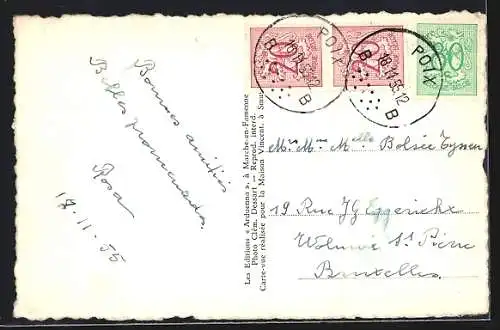 Bonnes amitiés
Belles promenades.
Rosa
17.11.55
Les Editions « Arduenna », à Marche-en-Famenne
Photo Clém. Dessart — Reprod. interd.
Carte-vue réalisée pour la Maison Vincent, à Smuid
20
20
POIX
B
18.11.55.12
B
POIX
B
18.11.55.12
B
Mr Mme Melle Bolsée
19 Rue JG Eggerickx
Woluwé St Pierre
Bruxelles.